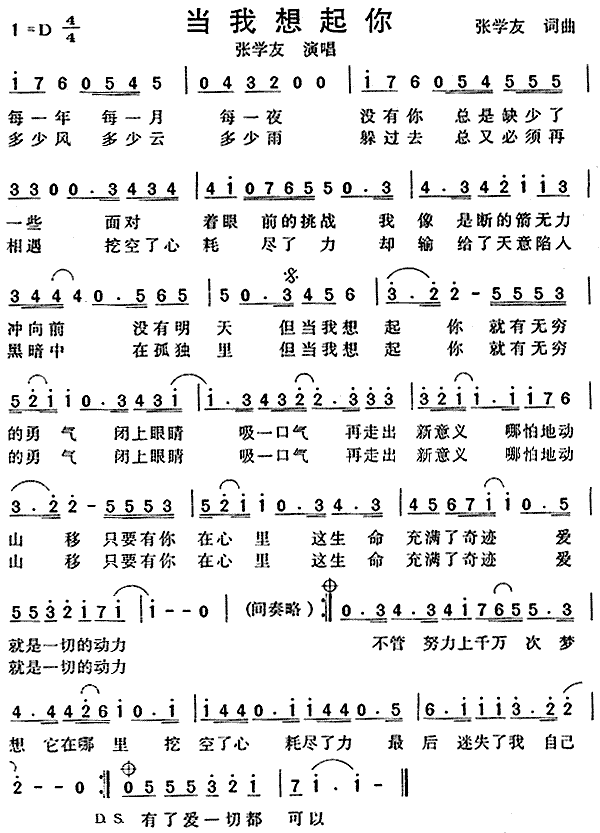 当我想起你
1=D 4/4
张学友 词曲
张学友 演唱
i 7 6 0 5 4 5 | 0 4 3 2 0 0 | i 7 6 0 5 4 5 5 5 |
每一年 每一月 每一夜 没有你 总是缺少了
多少风 多少云 多少雨 躲过去 总又必须再
3 3 0 0 . 3 4 3 4 | 4 i 0 7 6 5 5 0 . 3 | 4 . 3 4 2 i i 3
一些 面对 着眼 前的挑战 我 像 是断的箭无力
相遇 挖空了心 耗 尽了 力 却 输 给了天意陷人
3 4 4 4 0 . 5 6 5 | 5 0 . 3 4 5 6 | 3 . 2 2 - 5 5 5 3
冲向前 没有明 天 但当我想 起 你 就有无穷
黑暗中 在孤独 里 但当我想 起 你 就有无穷
5 2 i i 0 . 3 4 3 i | i . 3 4 3 2 2 . 3 3 3 | 3 2 i i . i i 7 6
的勇 气 闭上眼睛 吸一口气 再走出 新意义 哪怕地动
的勇 气 闭上眼睛 吸一口气 再走出 新意义 哪怕地动
3 . 2 2 - 5 5 5 3 | 5 2 i i 0 . 3 4 . 3 | 4 5 6 7 i i 0 . 5
山 移 只要有你 在心 里 这生 命 充满了奇迹 爱
山 移 只要有你 在心 里 这生 命 充满了奇迹 爱
5 5 3 2 i 7 i | i - - 0 (间奏略) :‖ 0 . 3 4 . 3 4 i 7 6 5 5 . 3
就是一切的动力 不管 努力上千万 次 梦
就是一切的动力
4 . 4 4 2 6 i 0 . i | i 4 4 0 . i i 4 4 0 . i | 6 . i i i 3 . 2 2
想 它在哪 里 挖 空了心 耗尽了力 最 后 迷失了我 自己
2 - - 0 :‖ 0 5 5 5 3 2 i | 7 i . i - ‖
D.S. 有了爱一切都 可以